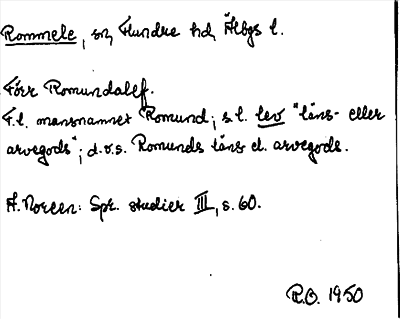 Rommele, sn, Flundre hd, Älbgs l.
Förr Romundalef.
F.l. mansnamnet Romund; s.l. lev "läns- eller
arvegods"; d.v.s. Romunds läns el. arvegods.
A. Noreen: Spr. studier III, s. 60.
R.O. 1950